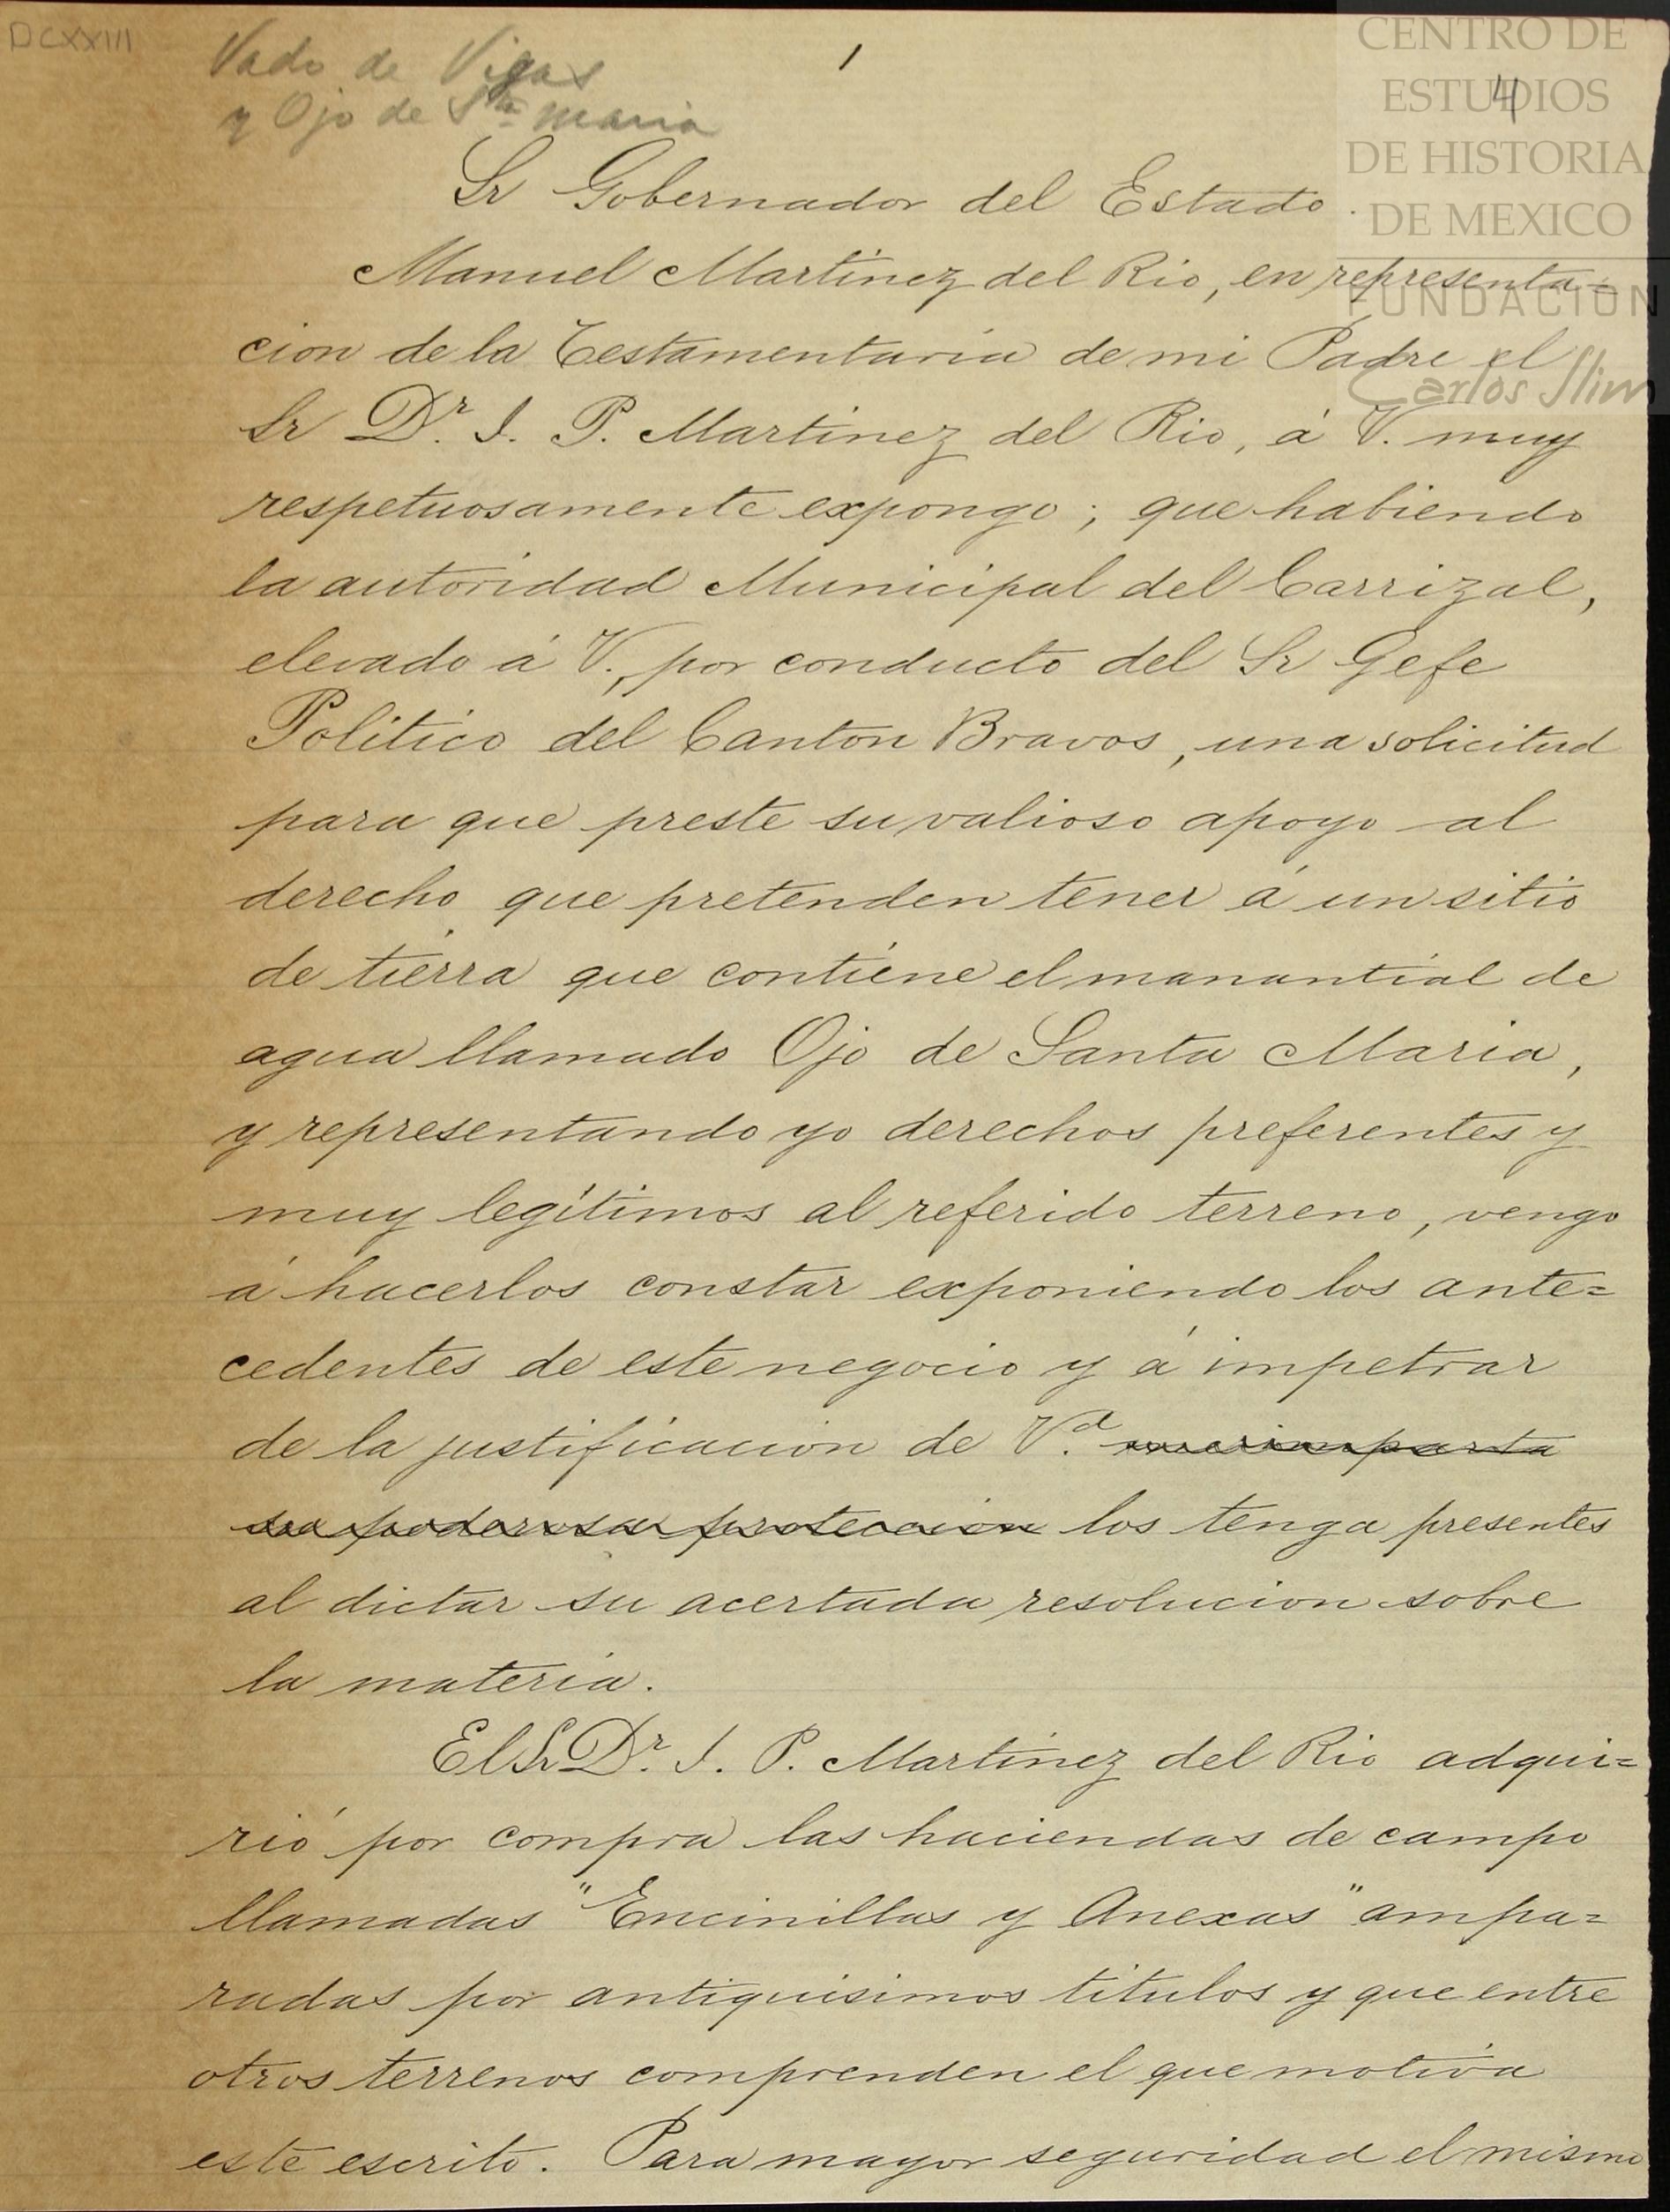 DCXXIII
Vado de Vigas
y Ojo de Sta Maria
1
4
CENTRO DE
ESTUDIOS
DE HISTORIA
DE MEXICO
FUNDACION
Carlos Slim
Sr Gobernador del Estado.
Manuel Martinez del Rio, en representa=
cion de la Testamentaria de mi Padre el
Sr Dr. J. P. Martinez del Rio, á V. muy
respetuosamente expongo; que habiendo
la autoridad Municipal del Carrizal,
elevado á V., por conducto del Sr Gefe
Politico del Canton Bravos, una solicitud
para que preste su valioso apoyo al
derecho que pretenden tener á un sitio
de tierra que contiene el manantial de
agua llamado Ojo de Santa Maria,
y representando yo derechos preferentes y
muy legítimos al referido terreno, vengo
á hacerlos constar exponiendo los ante=
cedentes de este negocio y á impetrar
de la justificacion de V.d
su poderosa proteccion los tenga presentes
al dictar su acertada resolucion sobre
la materia.
El Sr Dr. J. P. Martinez del Rio adqui=
rió por compra las haciendas de campo
llamadas "Encinillas y Anexas" ampa=
radas por antiquisimos titulos y que entre
otros terrenos comprenden el que motiva
este escrito. Para mayor seguridad el mismo